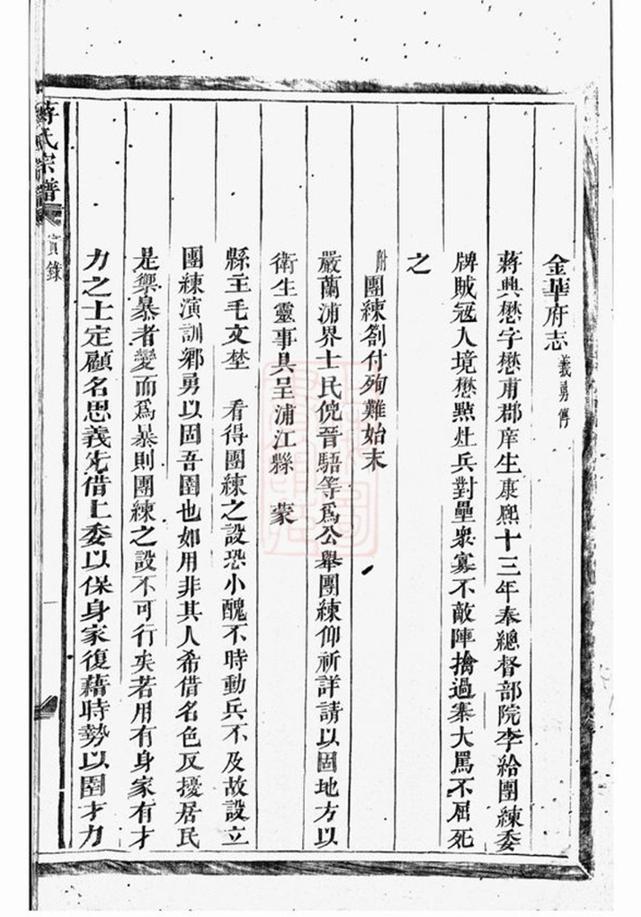 金華府志 義勇傳
蔣興懋字懋甫郡庠生康熙十三年奉總督部院李給團練委
牌賊冦入境懋㸃灶兵對壘衆寡不敵陣擒過寨大罵不屈死
之
附 團練劄付殉難始末
嚴蘭浦界士民倪晉𦙶等爲公舉團練仰祈詳請以固地方以
衛生靈事具呈浦江縣 蒙
縣主毛文埜 看得團練之設恐小醜不時動兵不及故設立
團練演訓鄉勇以固吾圉也如用非其人希借名色反擾居民
是禦暴者變而爲暴則團練之設不可行矣若用有身家有才
力之士定顧名思義先借上委以保身家復藉時勢以圉才力
蔣氏宗譜 實錄